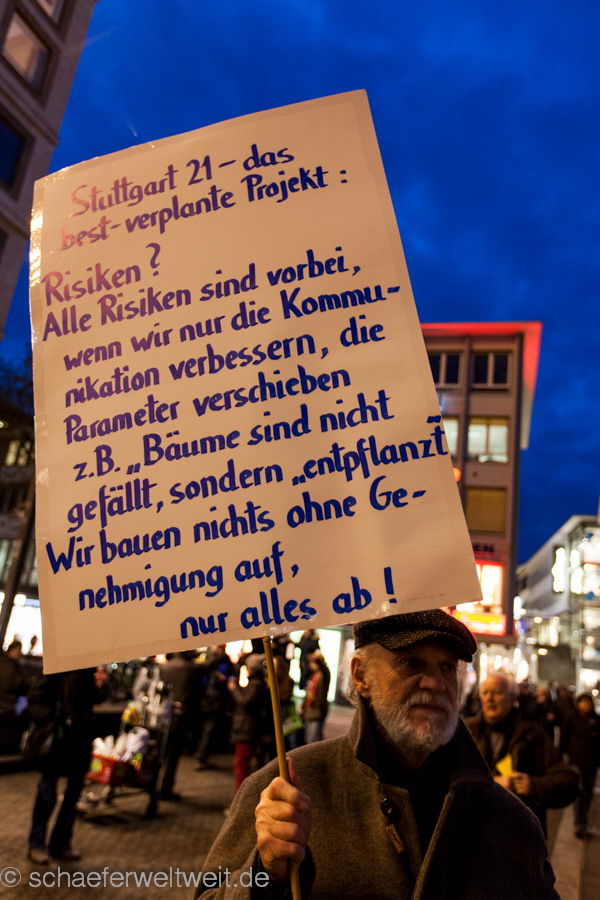 Stuttgart 21 – das
best-verplante Projekt:
Risiken?
Alle Risiken sind vorbei,
wenn wir nur die Kommu-
nikation verbessern, die
Parameter verschieben
z.B. „Bäume sind nicht
gefällt, sondern „entpflanzt"
Wir bauen nichts ohne Ge-
nehmigung auf,
nur alles ab!
© schaeferweltweit.de